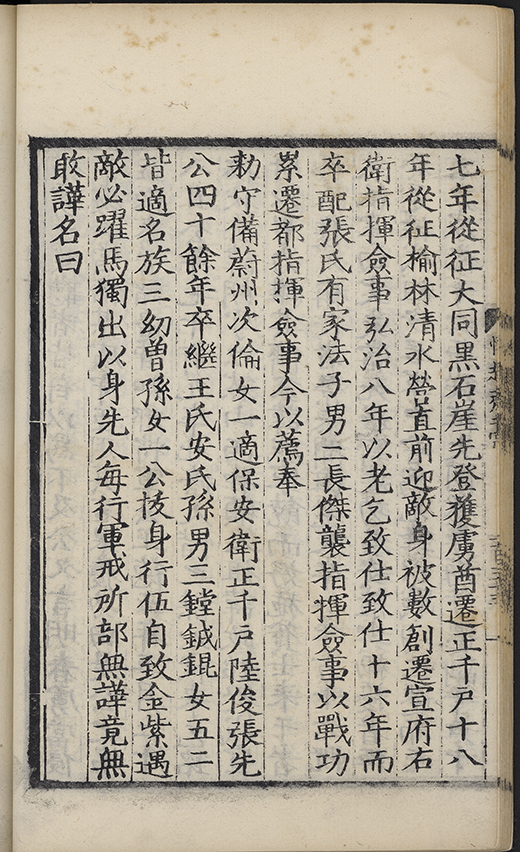 七年從征大同黑石崖先登獲虜酋遷正千戶十八
年從征榆林清水營首前迎敵身被數創遷宣府右
衛指揮僉事弘治八年以老乞致仕致仕十六年而
卒配張氏有家法子男二長傑襲指揮僉事以戰功
累遷都指揮僉事今以薦奉
勑守備蔚州次倫女一適保安衛正千戶陸俊張先
公四十餘年卒繼王氏安氏孫男三鏜鉞錕女五二
皆適名族三幼曾孫女一公拔身行伍自致金紫遇
敵必躍馬獨出以身先人每行軍戒所部無譁竟無
敢譁名曰